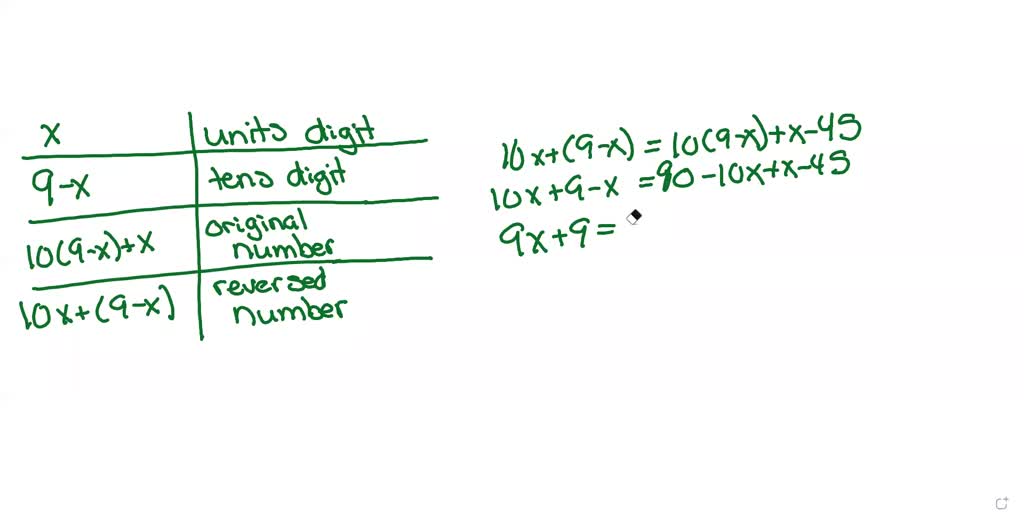 x units digit
9-x tens digit
10(9-x)+x original number
10x+(9-x) reversed number
10x+(9-x) = 10(9-x)+x-45
10x+9-x = 90-10x+x-45
9x+9=